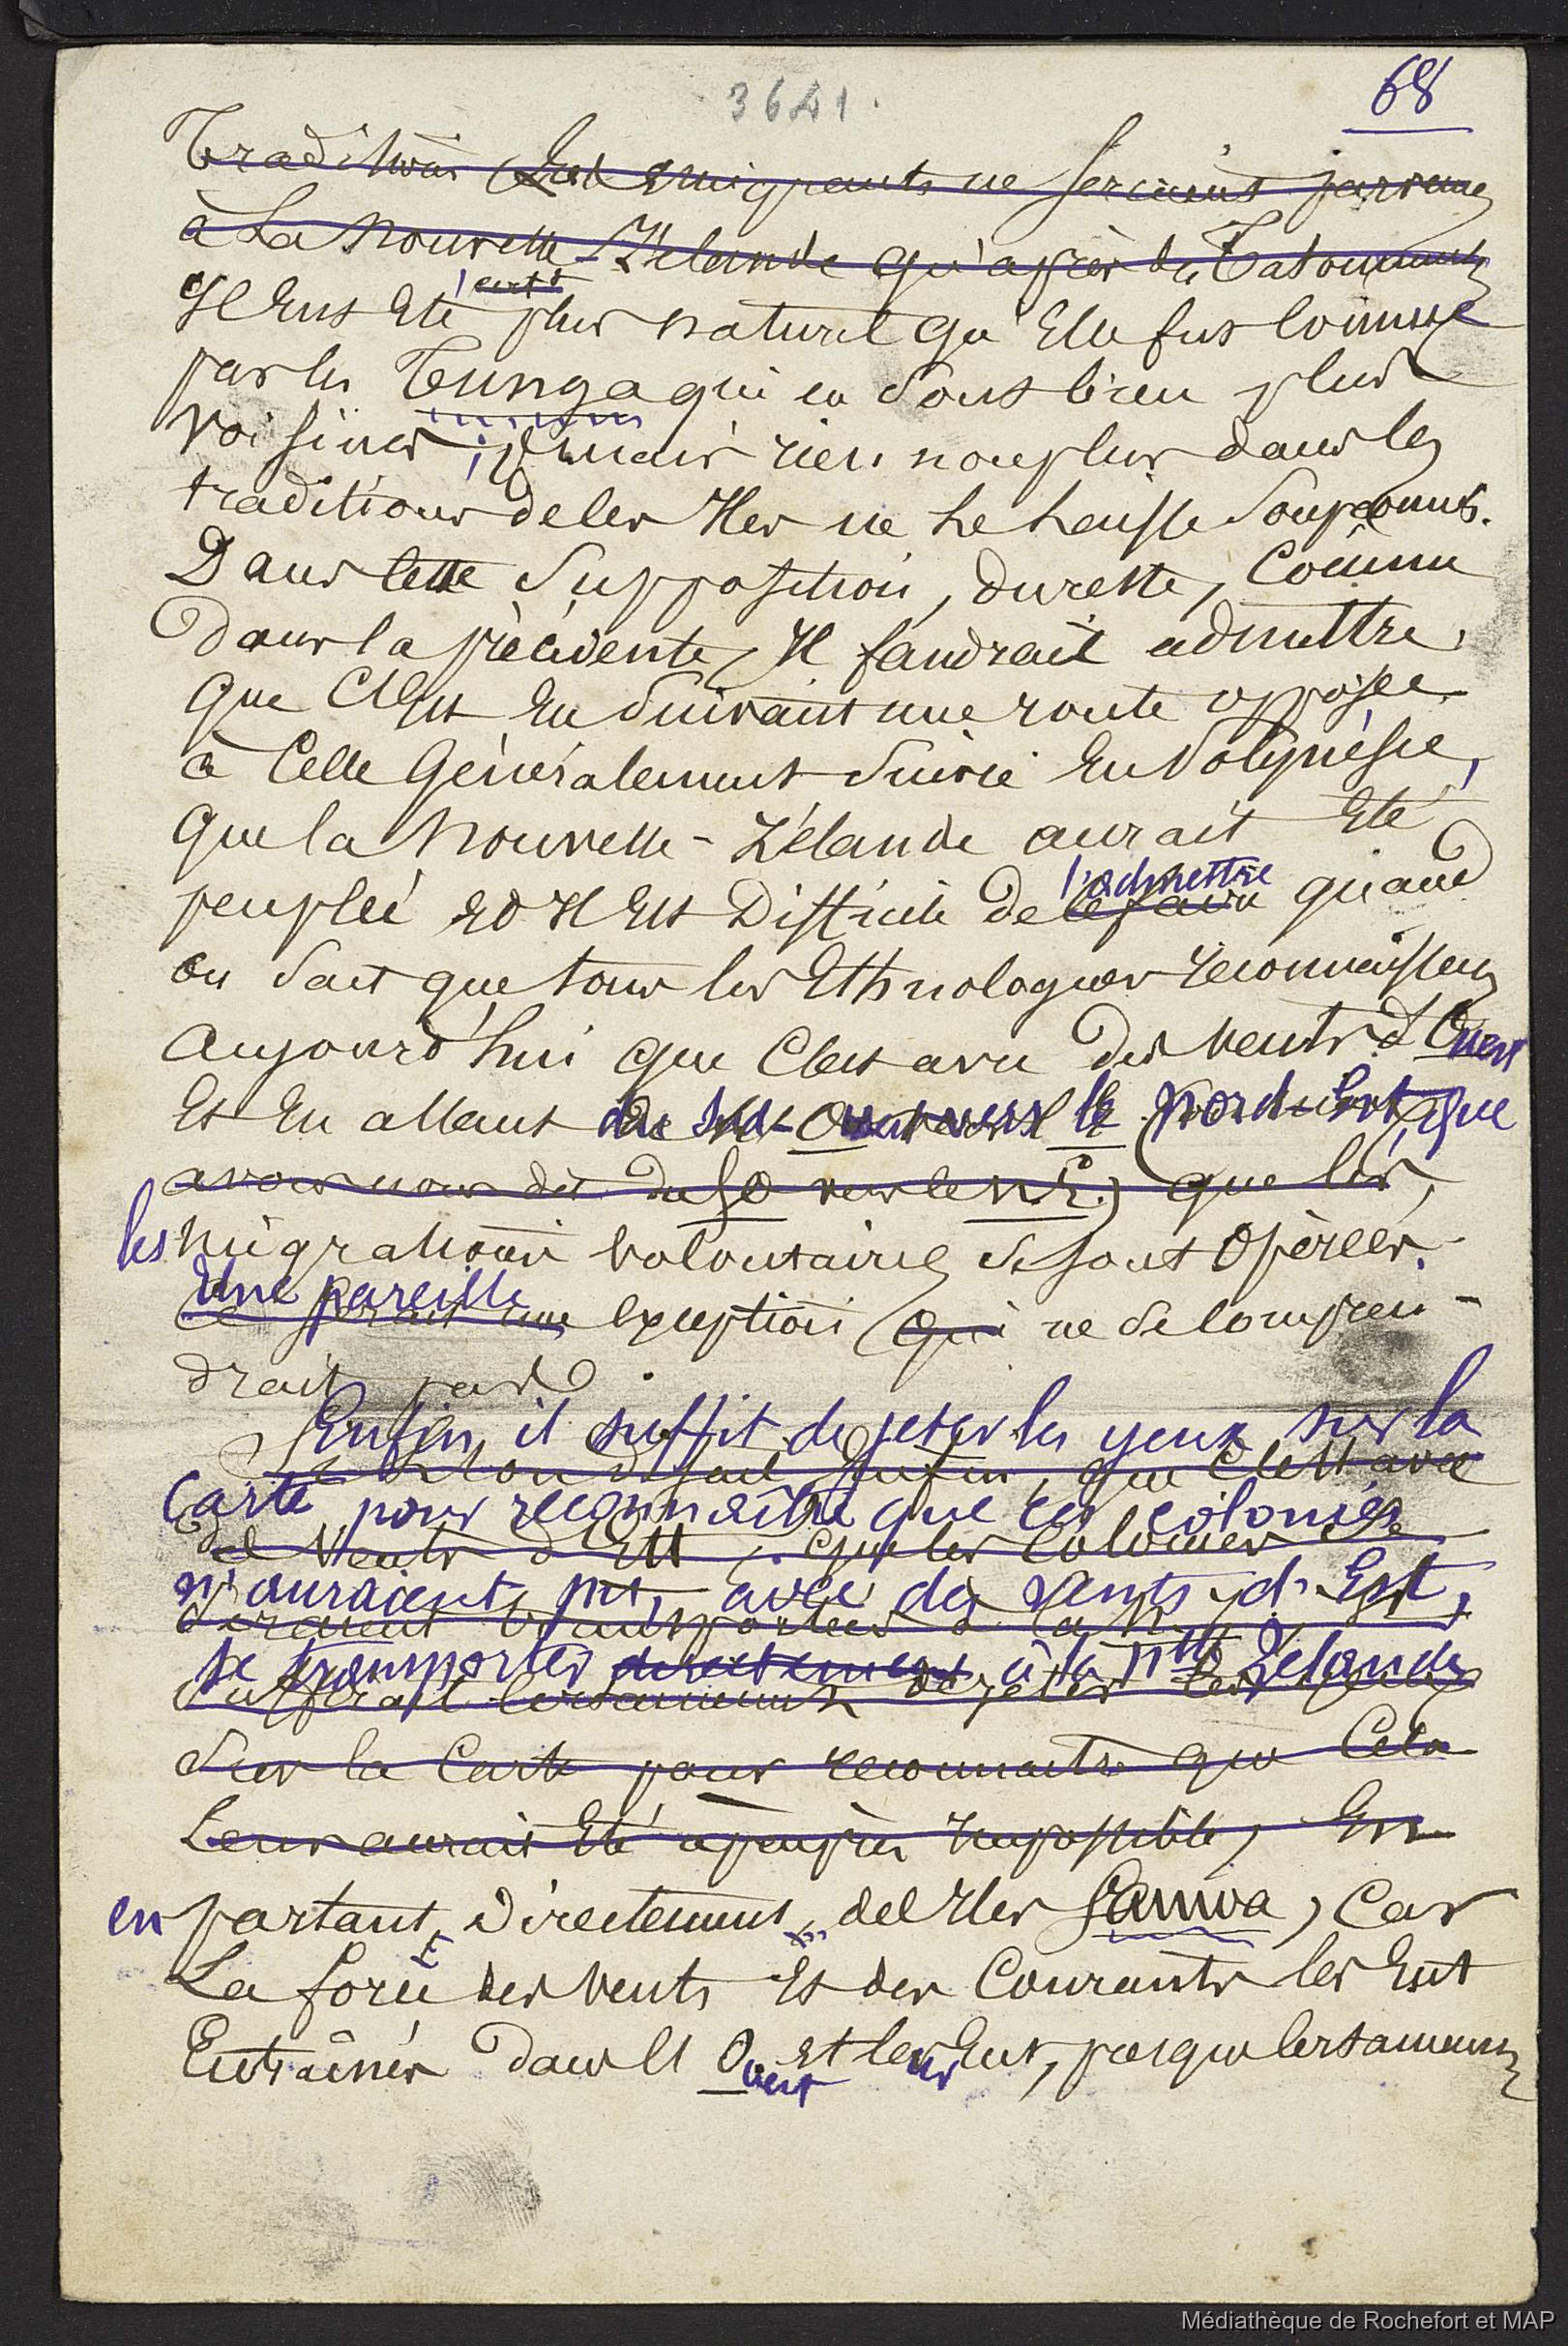 3641.
68
Traditions (Les émigrants ne seraient parvenus
à La Nouvelle-Zélande qu'après des Tatonnements
Il Eut Eté plus naturel qu'Elle fut connue
par les Tunga qui en sont bien plus
voisines; mais rien non plus dans les
traditions de ces Iles ne le laisse soupçonner.
Dans cette supposition, dureste, Comme
Dans la précédente, Il faudrait admettre,
que C'Est En suivant une route opposée
à Celle Généralement suivie En Polynésie,
que la Nouvelle-Zélande aurait Eté
l'admettre
peuplée Et Il Est Difficile de le faire quand
on sait que tous les Ethnologues reconnaissent
Aujourd'hui que C'est avec des vents d'Ouest
Et En allant du Sud-Ouest vers le Nord-Est, que
avons nous dit du SO vers le N.E.) que les,
les migrations volontaires se sont Opérées.
Une pareille
Ce serait une exception (qui ne se compren-
drait pas.
Enfin, il suffit de jeter les yeux sur la
Enfin, que C'Est avec
Carte pour reconnaître que ces colonies
de Vents d'Est, que les Colonies se
n'auraient pu, avec des vents d'Est,
seraient transportées à la N.
se transporter directement à la Nlle Zélande
suffirait certainement de jeter les yeux
Sur la Carte pour reconnaitre que Cela
Leur aurait Eté apeuprès Impossible, En
en partant, Directement, des Iles Samoa, Car
La force des vents Et des Courants les Eut
Entrainés Dans l'Ouest leur Eut, presque certainement
Médiathèque de Rochefort et MAP